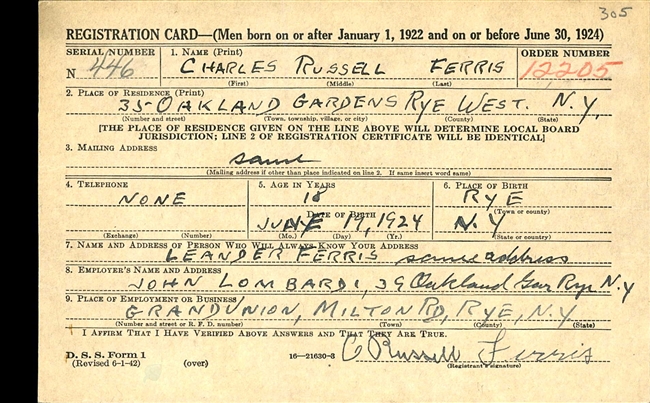 305
REGISTRATION CARD—(Men born on or after January 1, 1922 and on or before June 30, 1924)
SERIAL NUMBER 1. NAME (Print) ORDER NUMBER
N 446 CHARLES RUSSELL FERRIS 12205
(First) (Middle) (Last)
2. PLACE OF RESIDENCE (Print)
35 OAKLAND GARDENS RYE WEST. N.Y.
(Number and street) (Town, township, village, or city) (County) (State)
[THE PLACE OF RESIDENCE GIVEN ON THE LINE ABOVE WILL DETERMINE LOCAL BOARD
JURISDICTION; LINE 2 OF REGISTRATION CERTIFICATE WILL BE IDENTICAL]
3. MAILING ADDRESS
same
(Mailing address if other than place indicated on line 2. If same insert word same)
4. TELEPHONE 5. AGE IN YEARS 6. PLACE OF BIRTH
NONE 18 RYE
(Town or county)
DATE OF BIRTH
JUNE 19, 1924 N.Y
(Exchange) (Number) (Mo.) (Day) (Yr.) (State or country)
7. NAME AND ADDRESS OF PERSON WHO WILL ALWAYS KNOW YOUR ADDRESS
LEANDER FERRIS same address
8. EMPLOYER'S NAME AND ADDRESS
JOHN LOMBARDI, 39 Oakland Gar Rye N.Y
9. PLACE OF EMPLOYMENT OR BUSINESS
GRANDUNION, MILTON RD, RYE, N.Y.
(Number and street or R. F. D. number) (Town) (County) (State)
I AFFIRM THAT I HAVE VERIFIED ABOVE ANSWERS AND THAT THEY ARE TRUE.
D. S. S. Form 1
(Revised 6-1-42) (over) 16—21630-3 C Russell Ferris
(Registrant's signature)